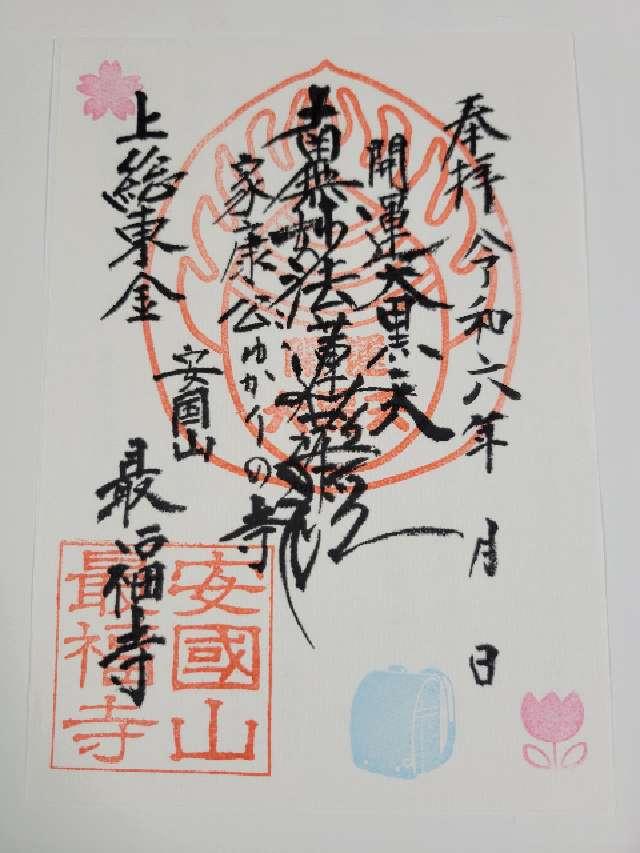 奉拝 令和六年 月 日
開運大黒天
南無妙法蓮華経
家康公ゆかりの寺
上総東金
安国山
最福寺
安國山
最福寺